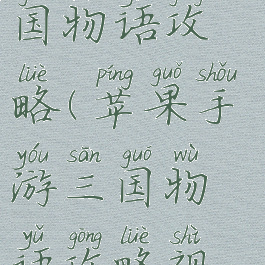 国物语攻
lüè píng guǒ shǒu
略(苹果手
yóu sān guó wù
游三国物
yǔ gōng lüè shì
语攻略视